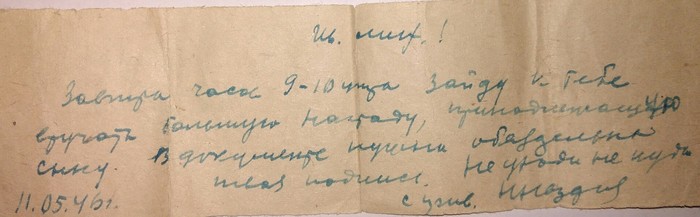 Ив. Мих.!
Завтра часа 9-10 утра зайду к тебе
вручать большую награду, принадлежащую
сыну. В документе нужна обязательна
твоя подпись. Не уходи не куда
11.05.46г. с уваж.